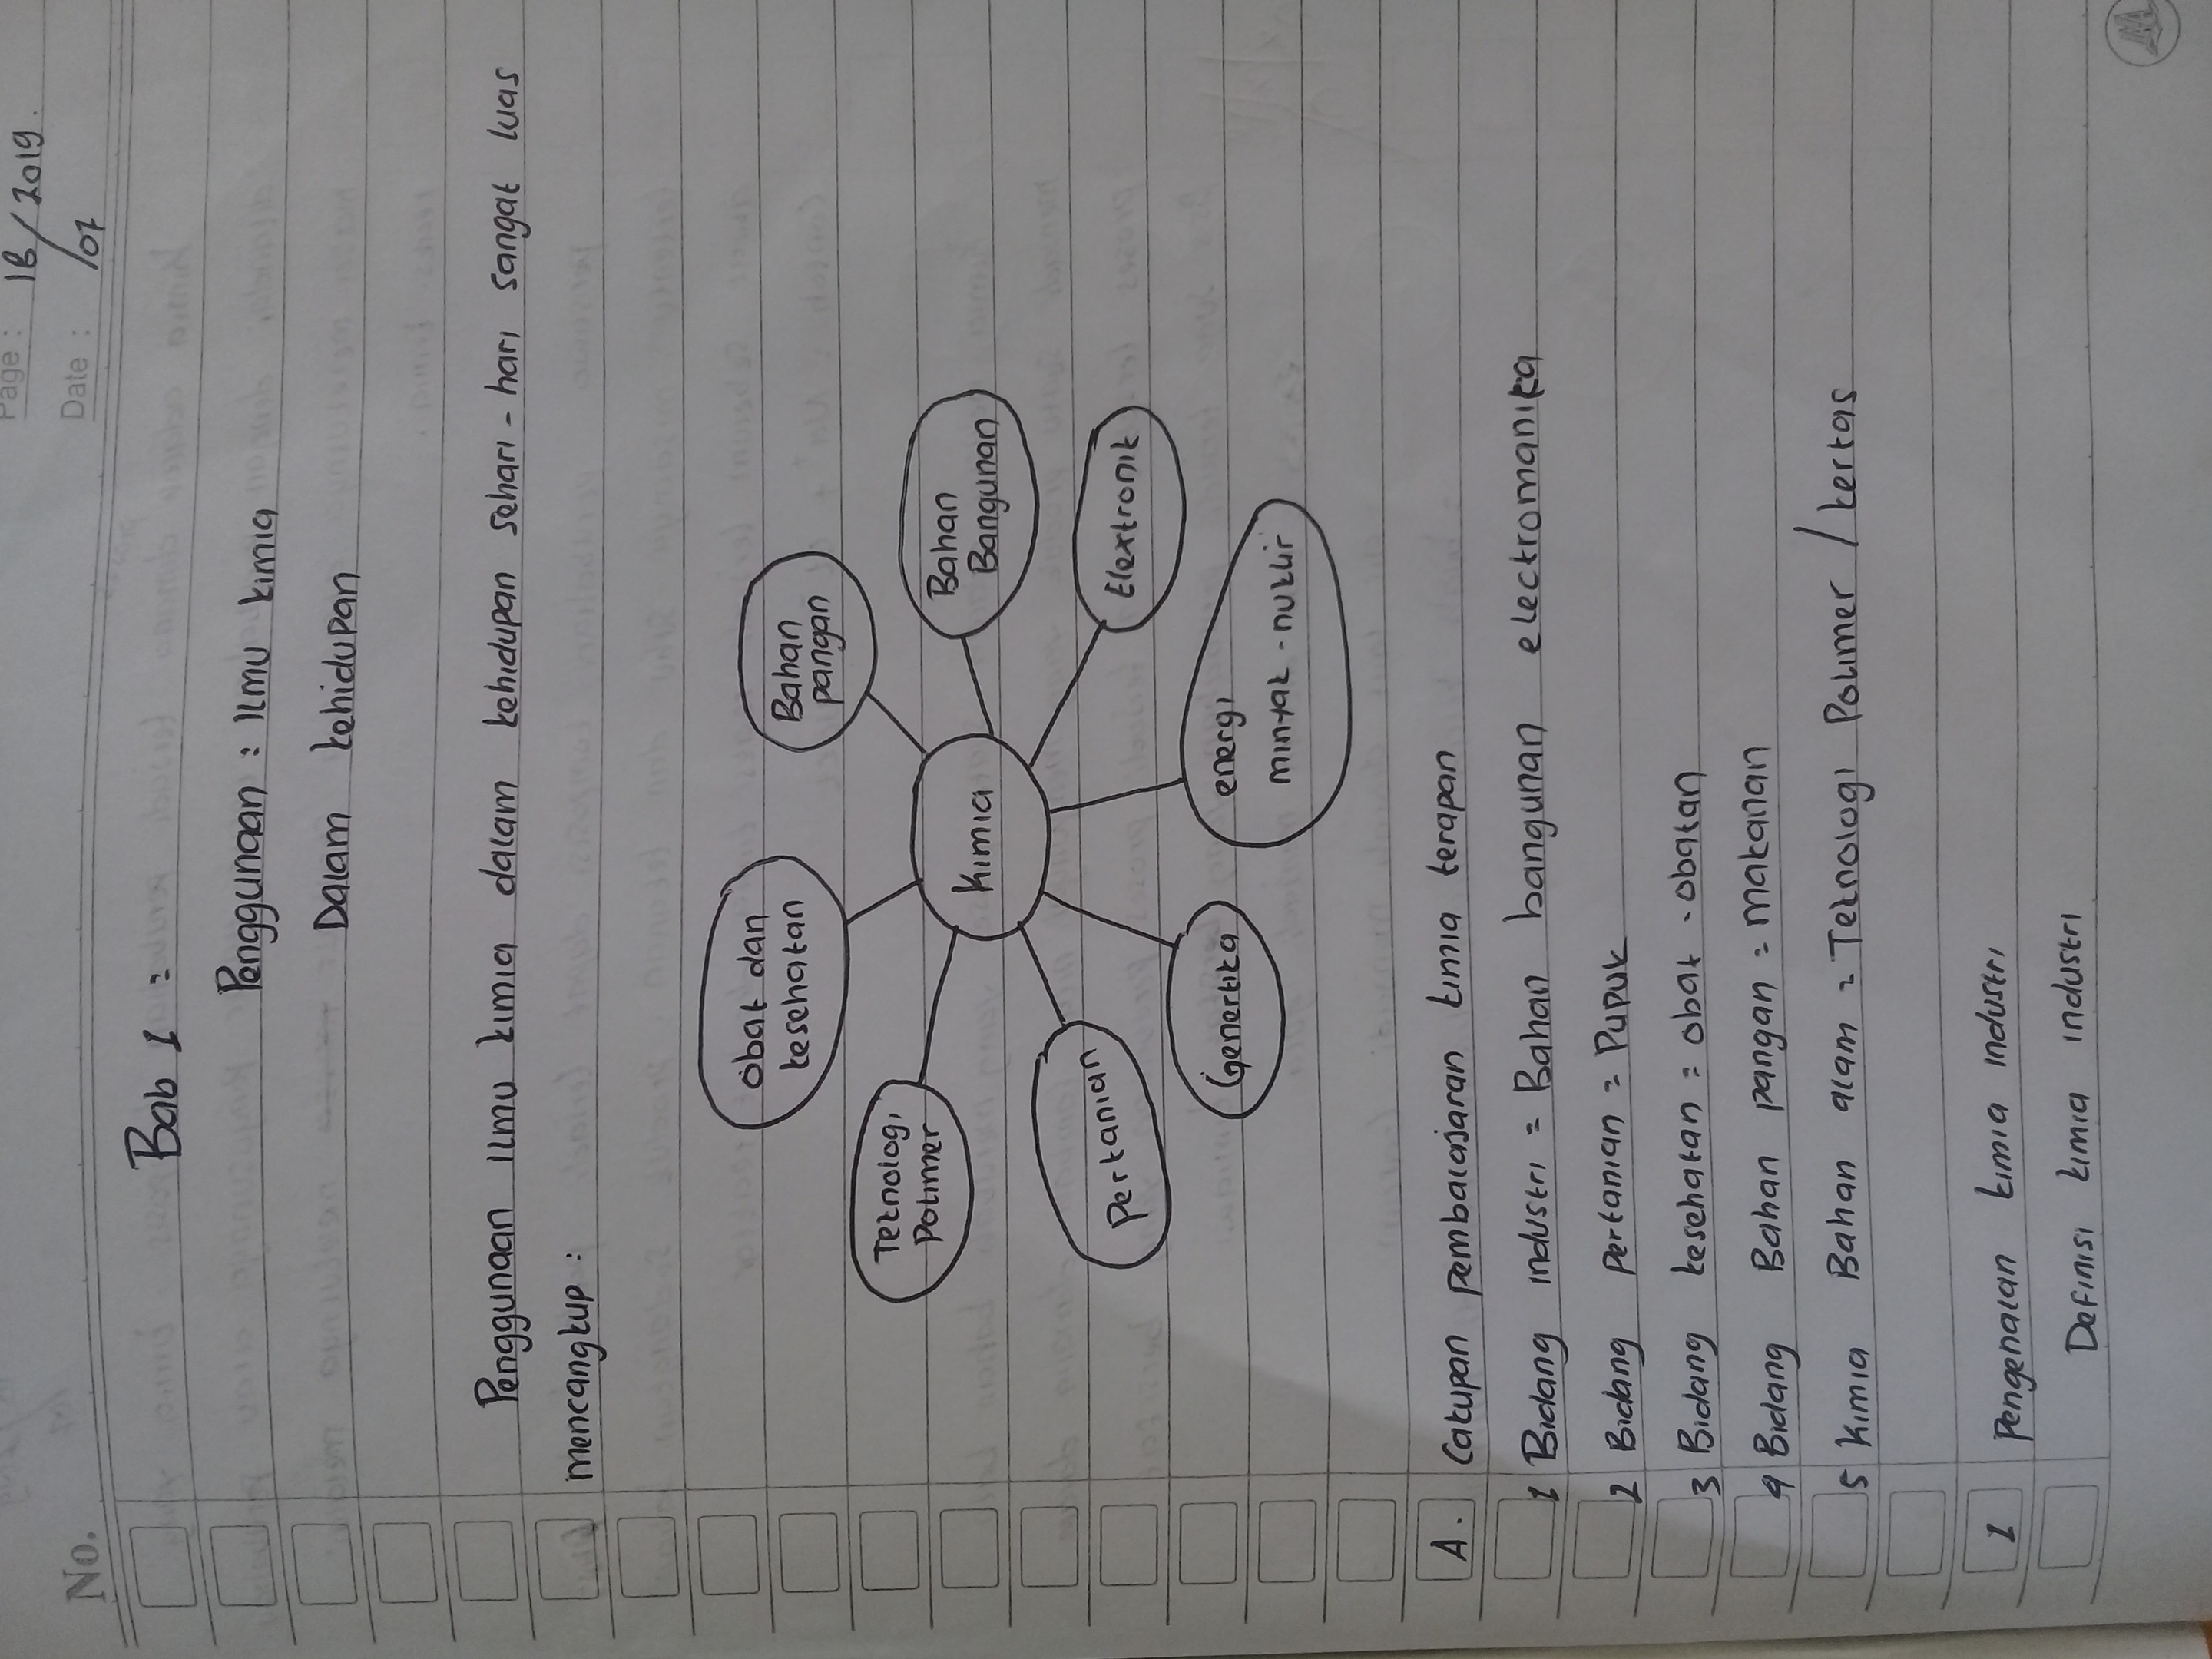 No.
Page : 18/2019.
Date : /07
Bab 1 :
Penggunaan : Ilmu kimia
Dalam kehidupan
Penggunaan Ilmu kimia dalam kehidupan sehari-hari sangat luas
mencangkup :
Obat dan
kesehatan
Bahan
pangan
Bahan
Bangunan
Elextronik
energi
minyak-nuklir
Genertika
Pertanian
Teknologi
Polimer
Kimia
A. Cakupan Pembalajaran kimia terapan
1 Bidang industri = Bahan bangunan electromanika
2 Bidang pertanian = Pupuk
3 Bidang kesehatan = obat-obatan
4 Bidang Bahan pangan = makanan
5 Kimia Bahan alam = Teknologi Polimer / kertas
1 Pengenalan kimia industri
Definisi kimia industri